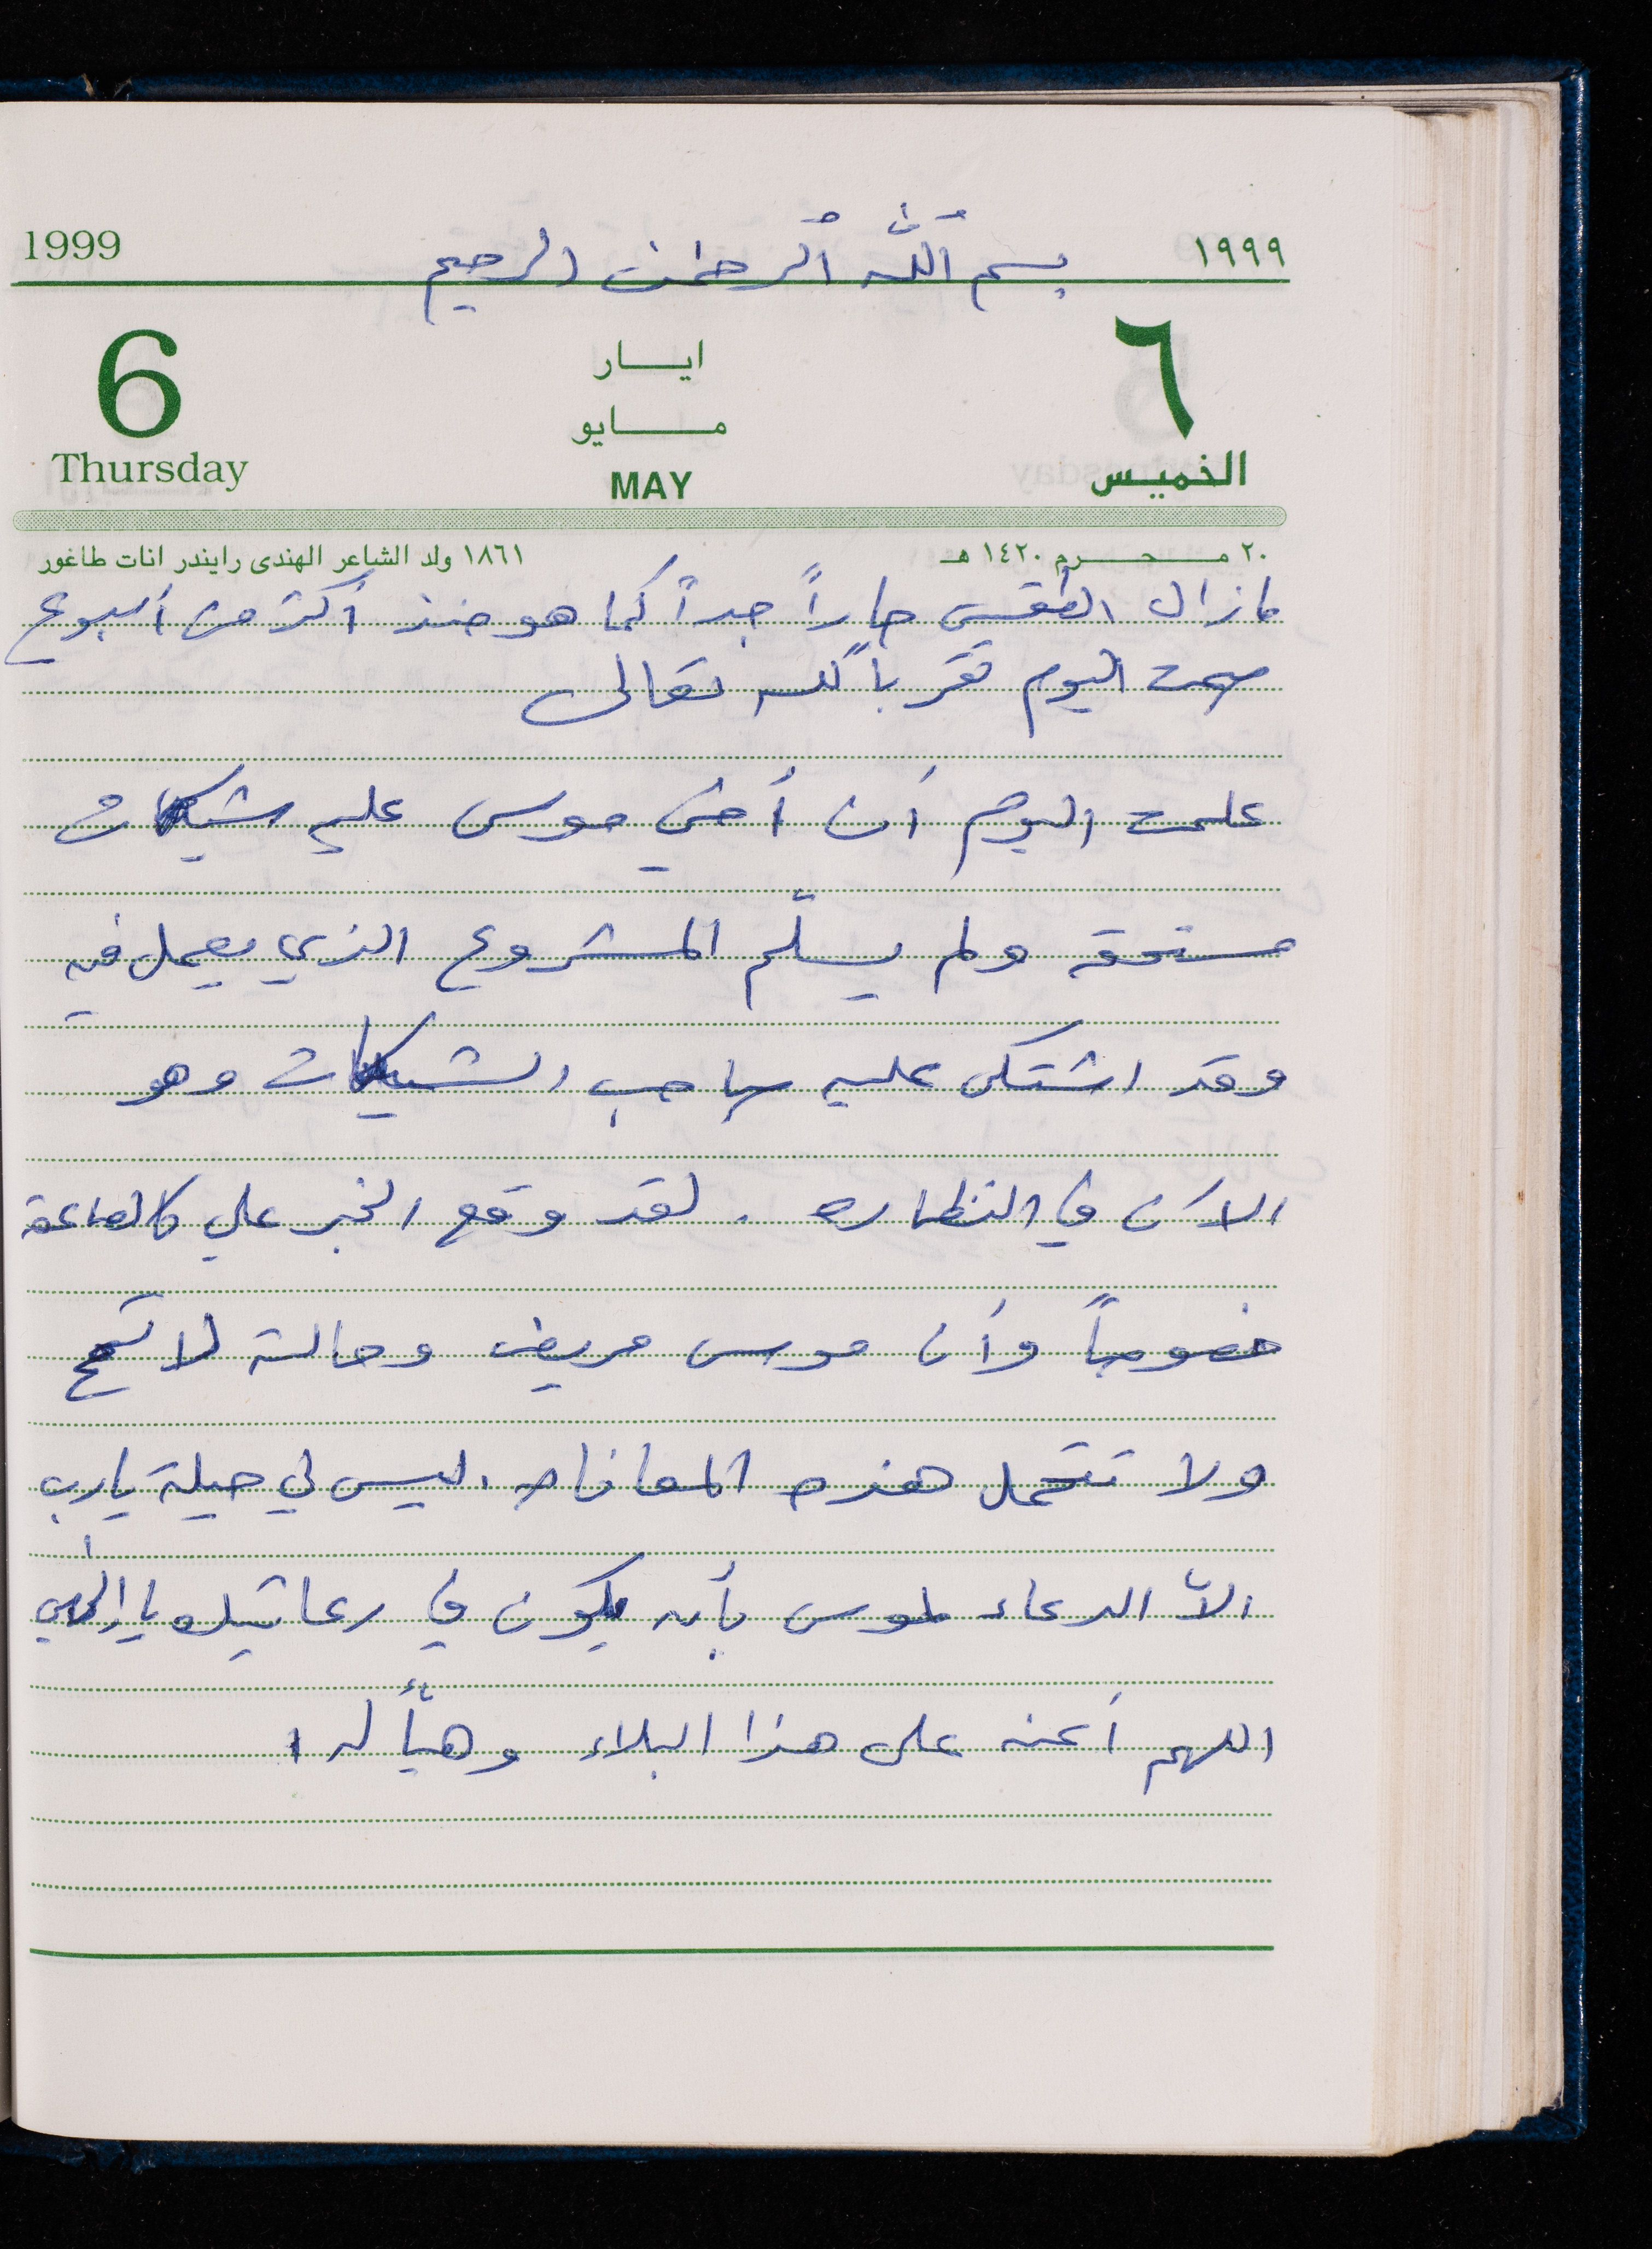 1999
بسم ٱللَّه ٱلرحمٰن الرحيم
١٩٩٩
6
ايــار
٦
مــايو
Thursday
MAY
الخميـس
٢٠ مــحــرم ١٤٢٠ هـ
١٨٦١ ولد الشاعر الهندى رايندر انات طاغور
مازال الطقس حاراً جداً كما هو منذ أكثر من أسبوع
صمت اليوم تقرباً لله تعالى
علمت اليوم أن أخي موسى عليه شيكات
مستحقة ولم يسلّم المشروع الذي يعمل فيه
وقد اشتكى عليه صاحب الشيكات وهو
الآن في النظاره . لقد وقع الخبر علي كالصاعقة
خصوصاً وأن موسى مريض وحالته لا تسمح
ولا تتحمل هذه المعاناه . ليس لي حيلة يارب
الاّ الدعاء لموسى بأنه يكون في رعايتك يا إلٰهي
اللهم أعنه على هذا البلاء وهيأ له ا